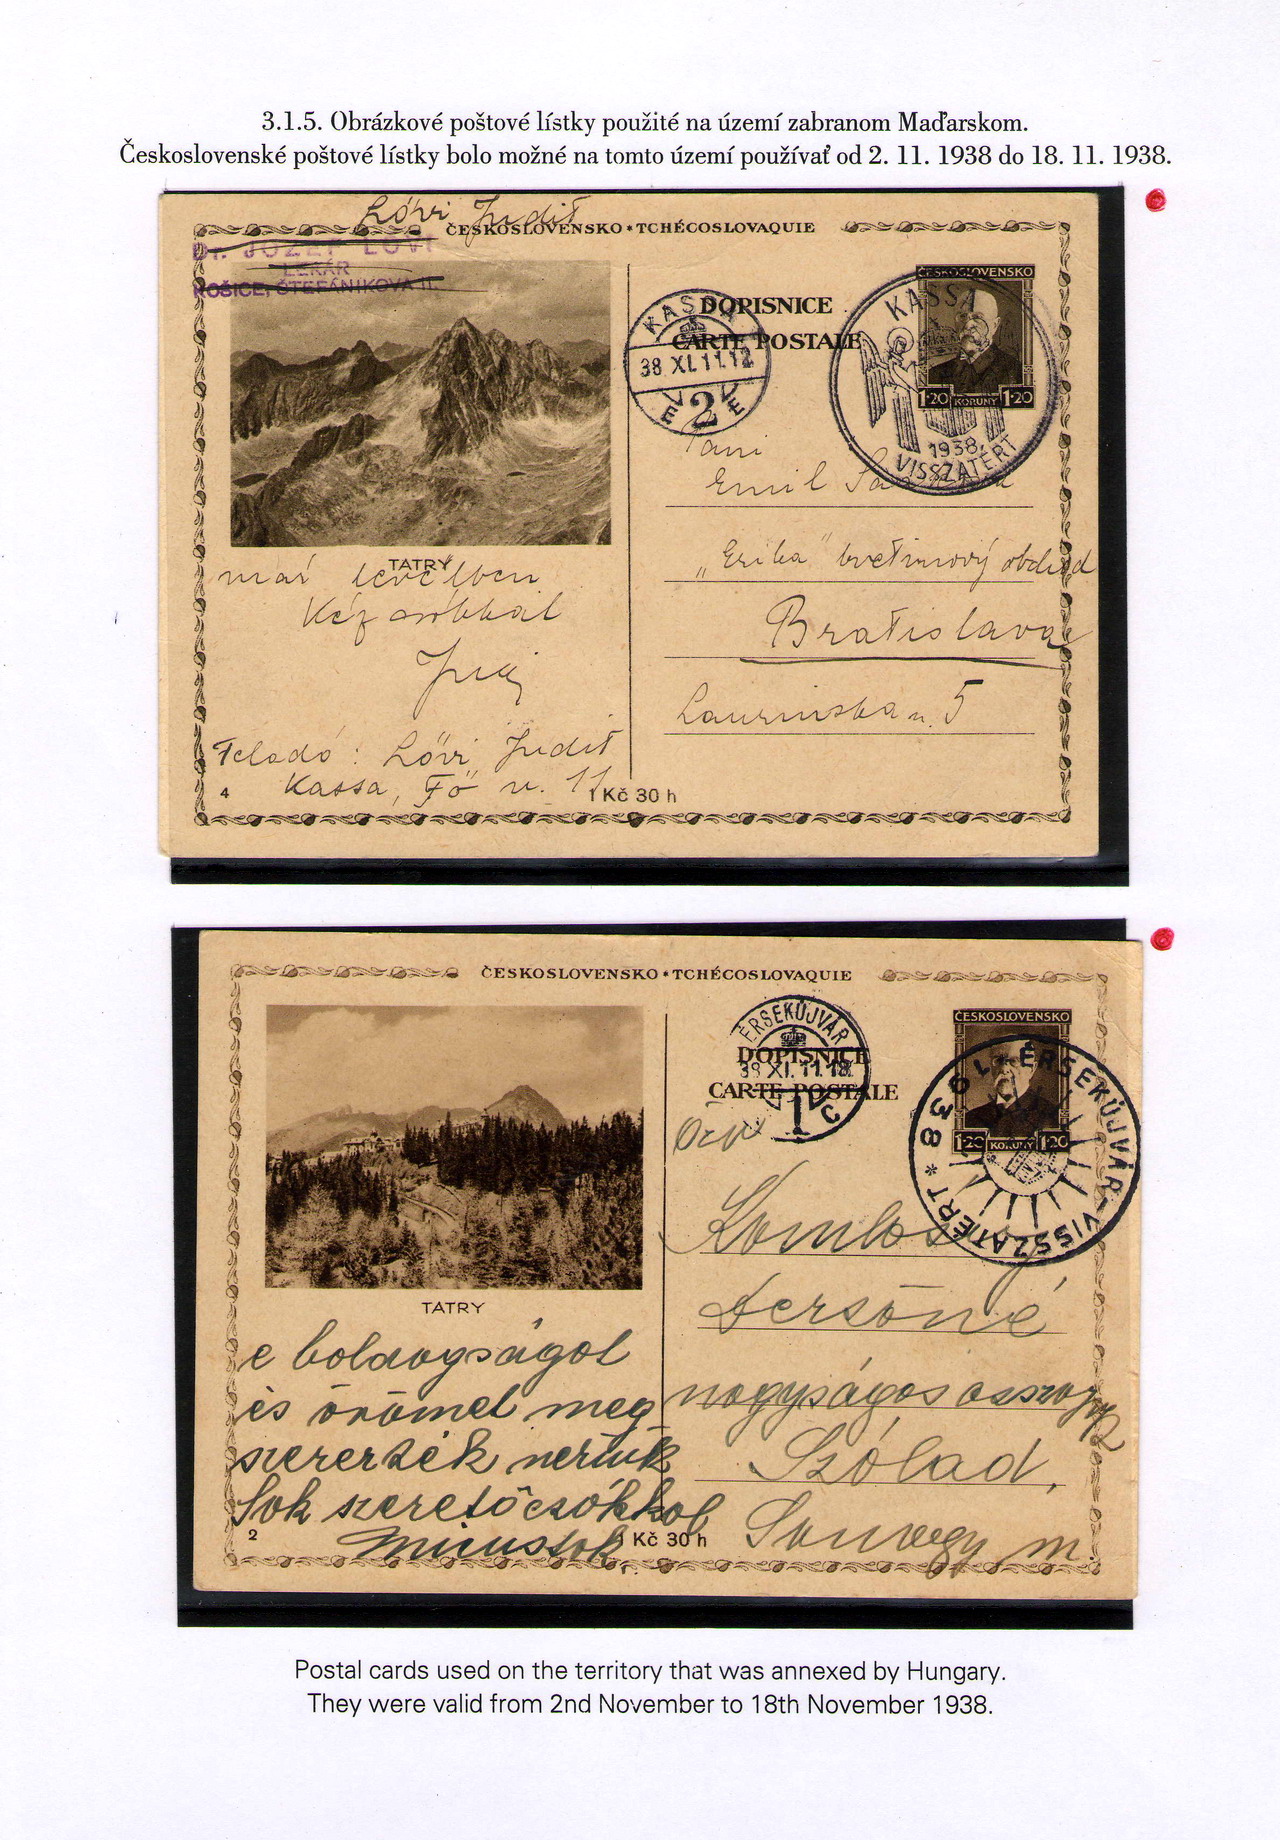 3.1.5. Obrázkové poštové lístky použité na území zabranom Maďarskom.
Československé poštové lístky bolo možné na tomto území používať od 2. 11. 1938 do 18. 11. 1938.
Lővi Judit
ČESKOSLOVENSKO * TCHÉCOSLOVAQUIE
Dr. JOZEF LÖVI
LEKÁR
KOŠICE, ŠTEFÁNIKOVA 11.
ČESKOSLOVENSKO
DOPISNICE
CARTE POSTALE
KASSA
38 XI. 11. 12
2
KASSA
1938.
VISSZATÉRT
1·20 KORUNY 1·20
Pani
Emil
"Erika" kvetinový obchod
Bratislava
Laurinska u. 5
TATRY
Kéz
Feladó: Lővi Judit
Kassa, Fő u. 11
4
1 Kč 30 h
ČESKOSLOVENSKO * TCHÉCOSLOVAQUIE
ČESKOSLOVENSKO
ÉRSEKÚJVÁR
DOPISNICE
38 XI. 11. 18
CARTE POSTALE
1·20 KORUNY 1·20
1938 ÉRSEKÚJVÁR VISSZATÉRT *
Komlós
Dezsőné
nagyságos asszony
Szólad,
Somogy m.
TATRY
e boldogságot
és örömet meg
szerezték nektük
Sok szerető csókkal
2
1 Kč 30 h
Postal cards used on the territory that was annexed by Hungary.
They were valid from 2nd November to 18th November 1938.